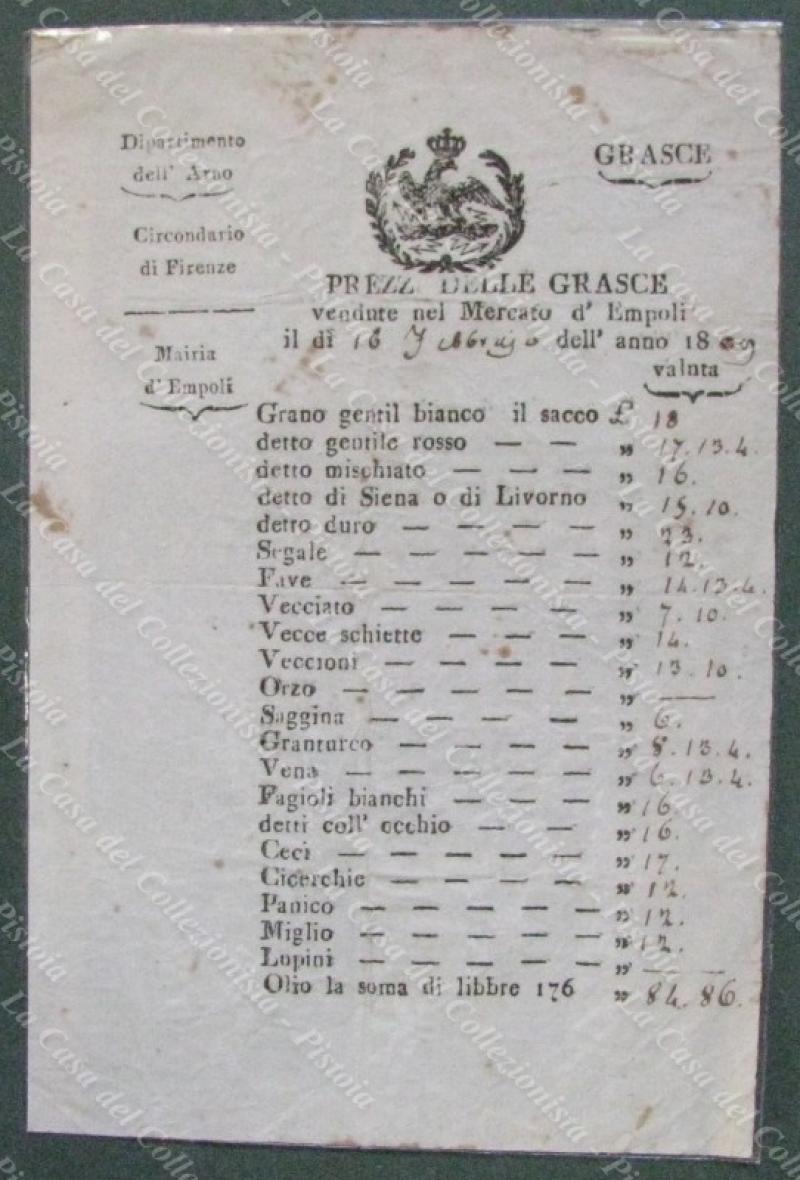 Dipartimento
dell' Arno
Circondario
di Firenze
Mairia
d' Empoli
GRASCE
PREZZ DELLE GRASCE
vendute nel Mercato d' Empoli
il dì 16 Febraijo dell' anno 1809
valuta
Grano gentil bianco il sacco £ 18
detto gentile rosso — — „ 17.13.4.
detto mischiato — — — „ 16.
detto di Siena o di Livorno „ 15.10.
detto duro — — — — „ 23.
Segale — — — — — „ 12.
Fave — — — — — „ 14.13.4.
Vecciato — — — — „ 7.10.
Vecce schiette — — — „ 14.
Veccioni — — — — „ 13.10.
Orzo — — — — — „ —
Saggina — — — — „ 6.
Granturco — — — — „ 8.13.4.
Vena — — — — — „ 6.13.4.
Fagioli bianchi — — — „ 16.
detti coll' occhio — — „ 16.
Ceci — — — — — „ 17.
Cicerchie — — — — „ 12.
Panico — — — — — „ 12.
Miglio — — — — — „ 12.
Lupini — — — — — „ — —
Olio la soma di libbre 176 „ 84.86.
La Casa del Collezionista - Pistoia